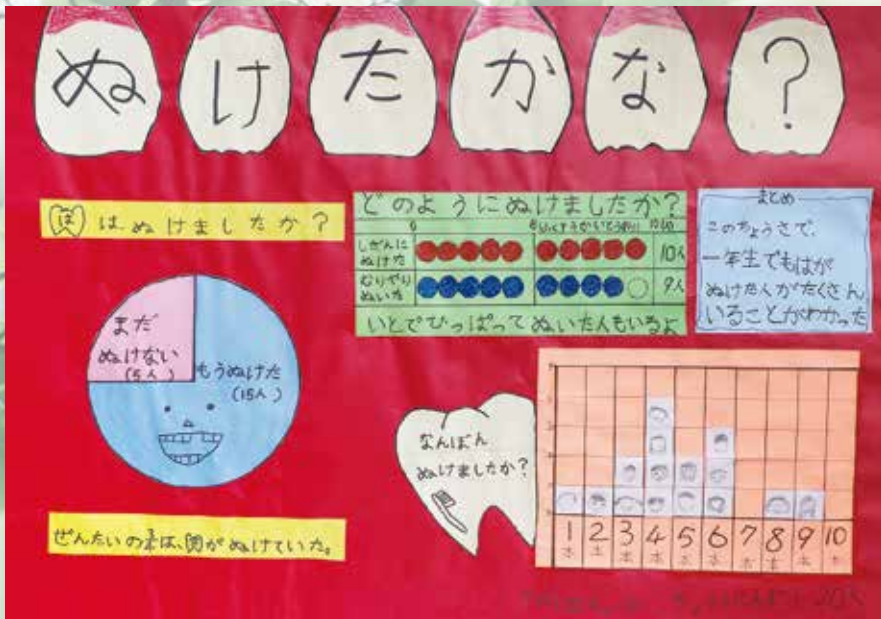 ぬけたかな?
は はぬけましたか?
まだ
ぬけない
(5人)
もうぬけた
(15人)
どのようにぬけましたか?
しぜんに
ぬけた
10人
むりやり
ぬいた
9人
いとでひっぱってぬいた人もいるよ
まとめ
このちょうさで、
一年生でもはが
ぬけた人がたくさん
いることがわかった
なんぼん
ぬけましたか?
1 2 3 4 5 6 7 8 9 10
本 本 本 本 本 本 本 本 本 本
ぜんたいの は、歯がぬけていた。
20人